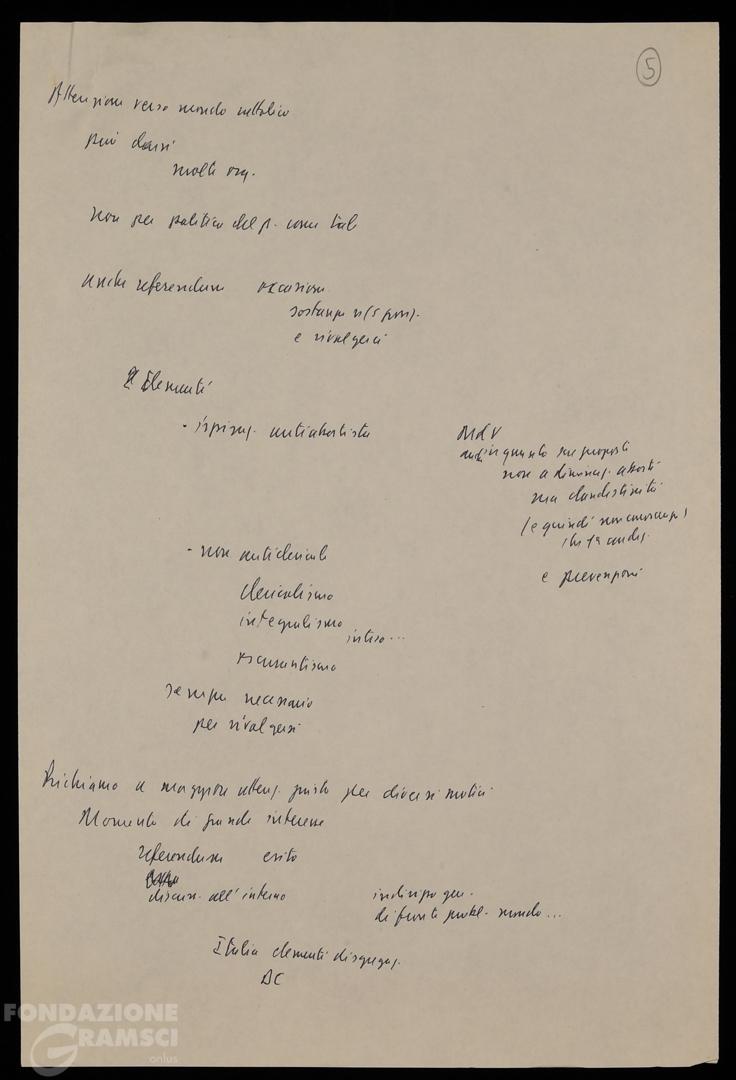 5
Attenzione verso mondo cattolico
può darsi
molte org.
non per politica del p. come tale
anche referendum occasione
e rivolgerci
Elementi
- ispiraz. antiabortista
MdV
in quanto sue proposte
non a diminuz. aborti
ma clandestinità
(e quindi non conoscenza)
e prevenzioni
- non anticlericale
clericalismo
integralismo
inteso...
oscurantismo
sempre necessario
per rivolgersi
Richiamo a maggiore attenz. giusto per diversi motivi
Momento di grande interesse
referendum esito
discuss. all'interno
indirizzo gen.
di fronte probl. mondo...
Italia elementi disgregaz.
DC
FONDAZIONE
GRAMSCI
onlus